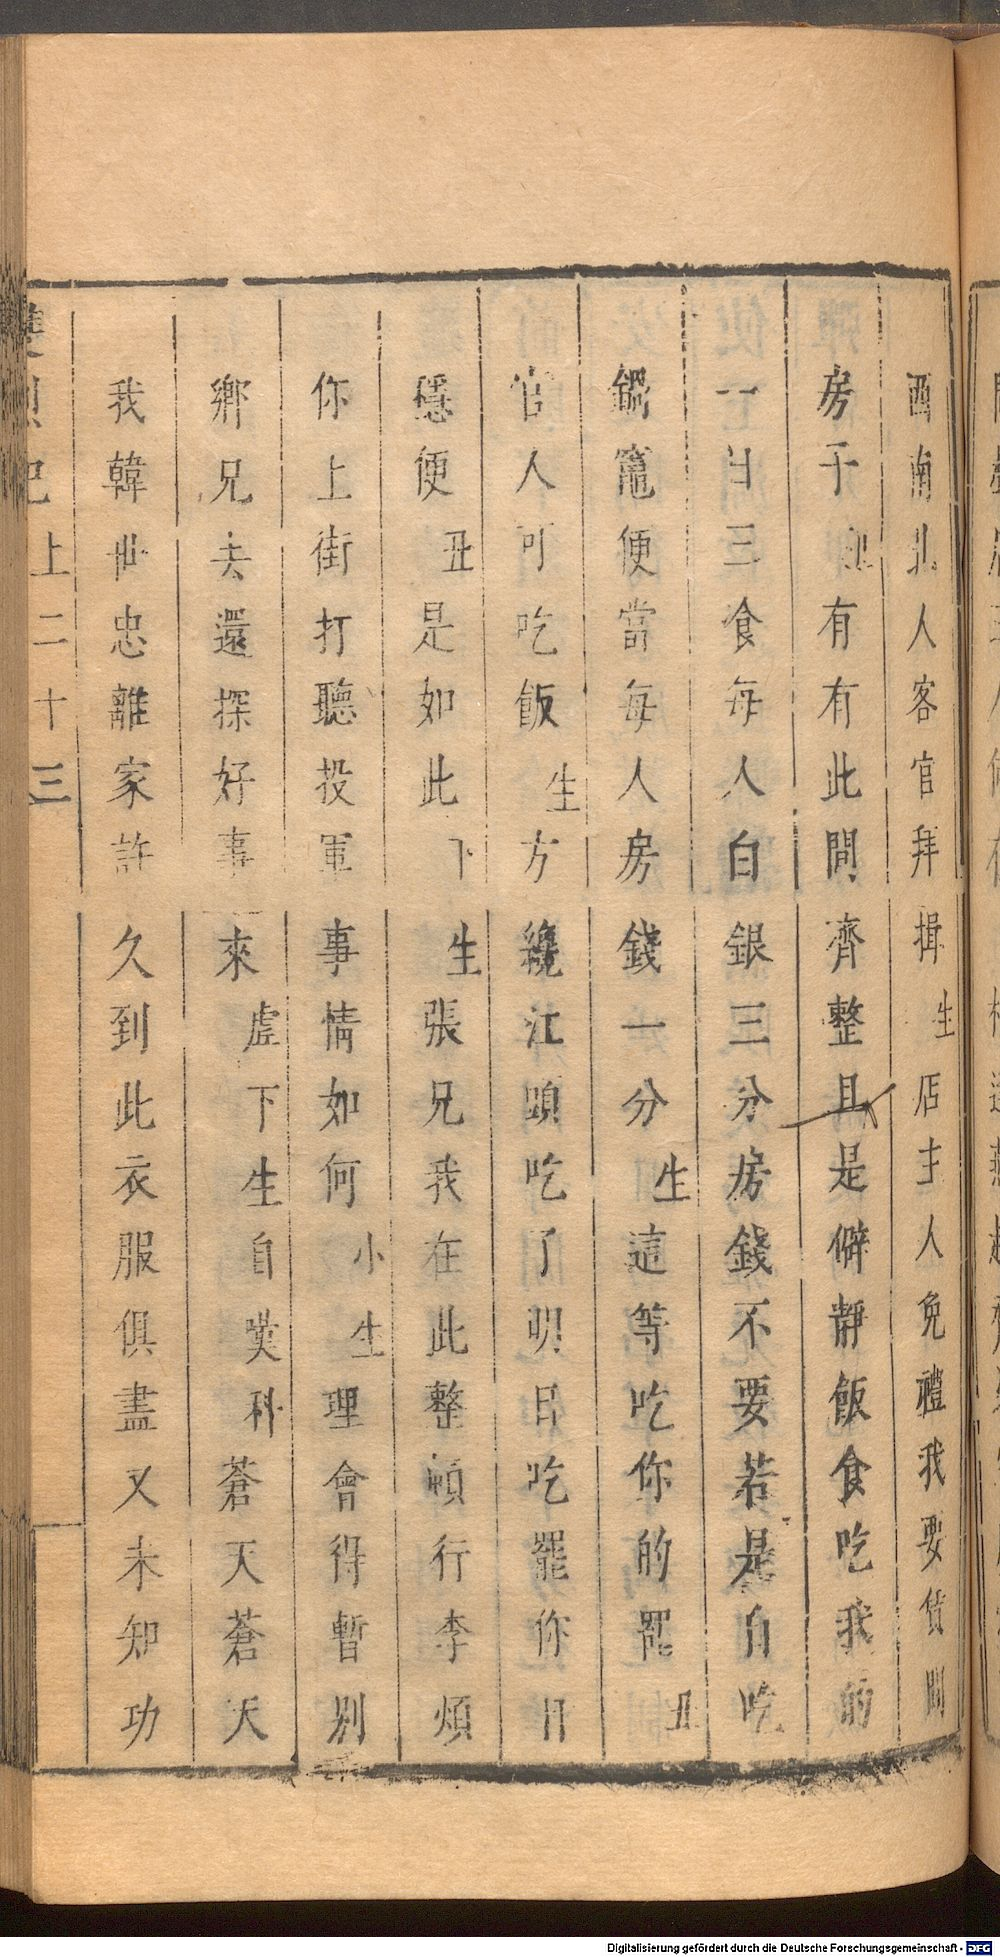 酉南北人客官拜揖生店主人免禮我要賃間
房子丑有有此間齊整且是僻靜飯食吃我的
一日三食每人白銀三分房錢不要若是自吃
鍋竈便當每人房錢一分生這等吃你的罷丑
官人可吃飯生方纔江頭吃了明日吃罷你自
穩便丑是如此下生張兄我在此整頓行李煩
你上街打聽投軍事情如何小生理會得暫別
鄉兄去還探好事來虛下生自嘆科蒼天蒼天
我韓世忠離家許久到此衣服俱盡又未知功
雙烈記上二十三
Digitalisierung gefördert durch die Deutsche Forschungsgemeinschaft - DFG